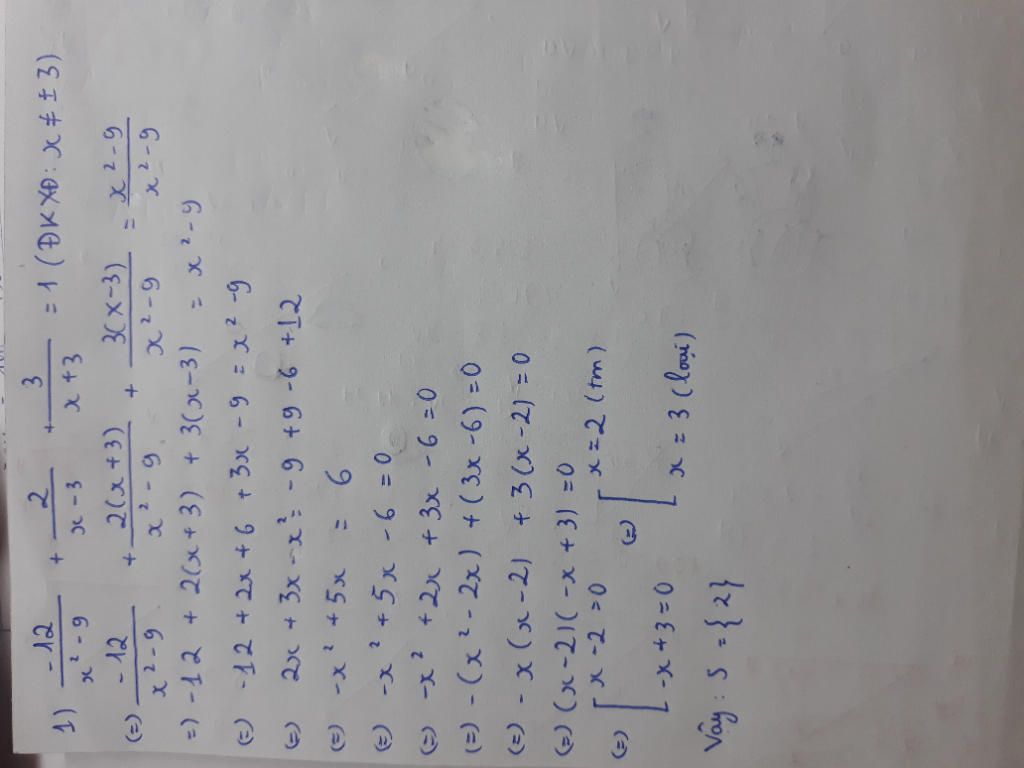 1) -12/(x² - 9) + 2/(x - 3) + 3/(x + 3) = 1 (ĐKXĐ: x ≠ ± 3)
(=) -12/(x² - 9) + 2(x + 3)/(x² - 9) + 3(x - 3)/(x² - 9) = (x² - 9)/(x² - 9)
=) -12 + 2(x + 3) + 3(x - 3) = x² - 9
(=) -12 + 2x + 6 + 3x - 9 = x² - 9
(=) 2x + 3x - x² = -9 + 9 - 6 + 12
(=) -x² + 5x = 6
(=) -x² + 5x - 6 = 0
(=) -x² + 2x + 3x - 6 = 0
(=) -(x² - 2x) + (3x - 6) = 0
(=) -x(x - 2) + 3(x - 2) = 0
(=) (x - 2)(-x + 3) = 0
(=) [ x - 2 = 0 (=) [ x = 2 (tm)
-x + 3 = 0 x = 3 (loại)
Vậy : S = {2}